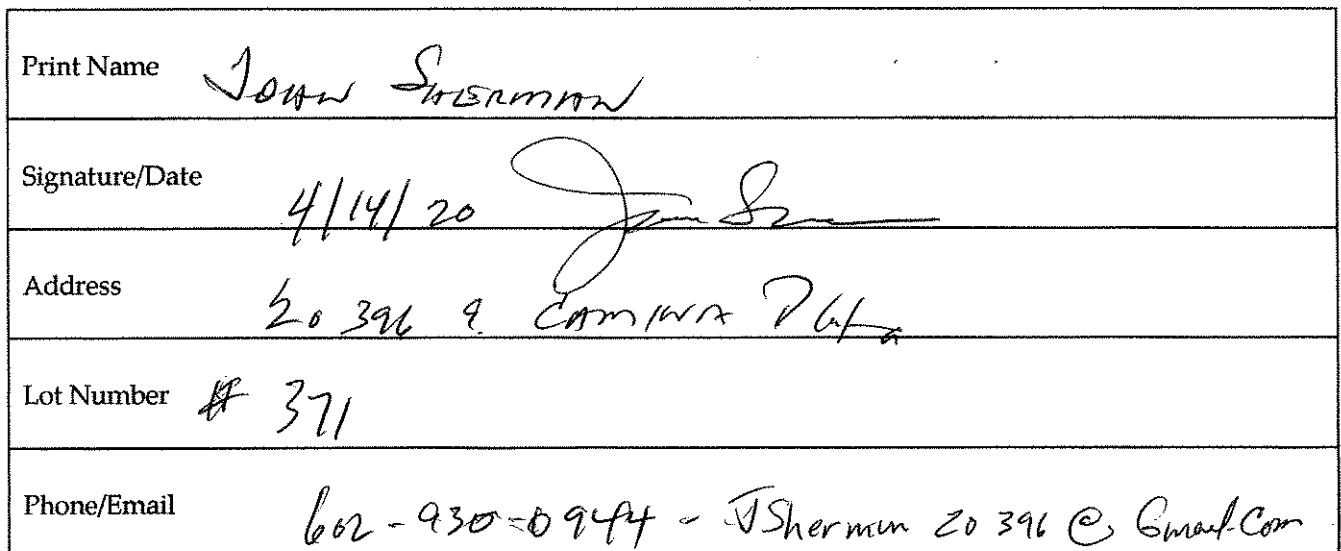 Print Name JOHN SHERMAN
Signature/Date 4/14/20
Address 20396 CAMINA
Lot Number # 371
Phone/Email 602-930-0944 - JSherman 20396 @ Gmail.Com